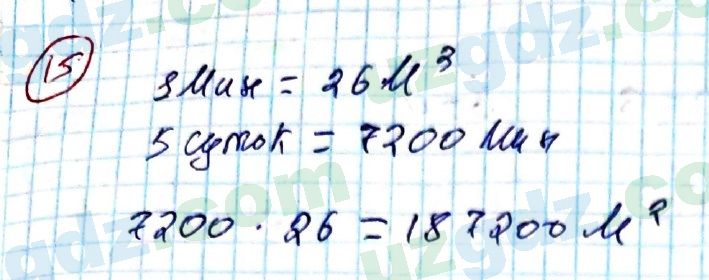 15
3 мин = 26 м³
5 суток = 7200 мин
7200 · 26 = 187200 м²
gdz.com
uzgdz.com
gdz.com
uzgdz.com